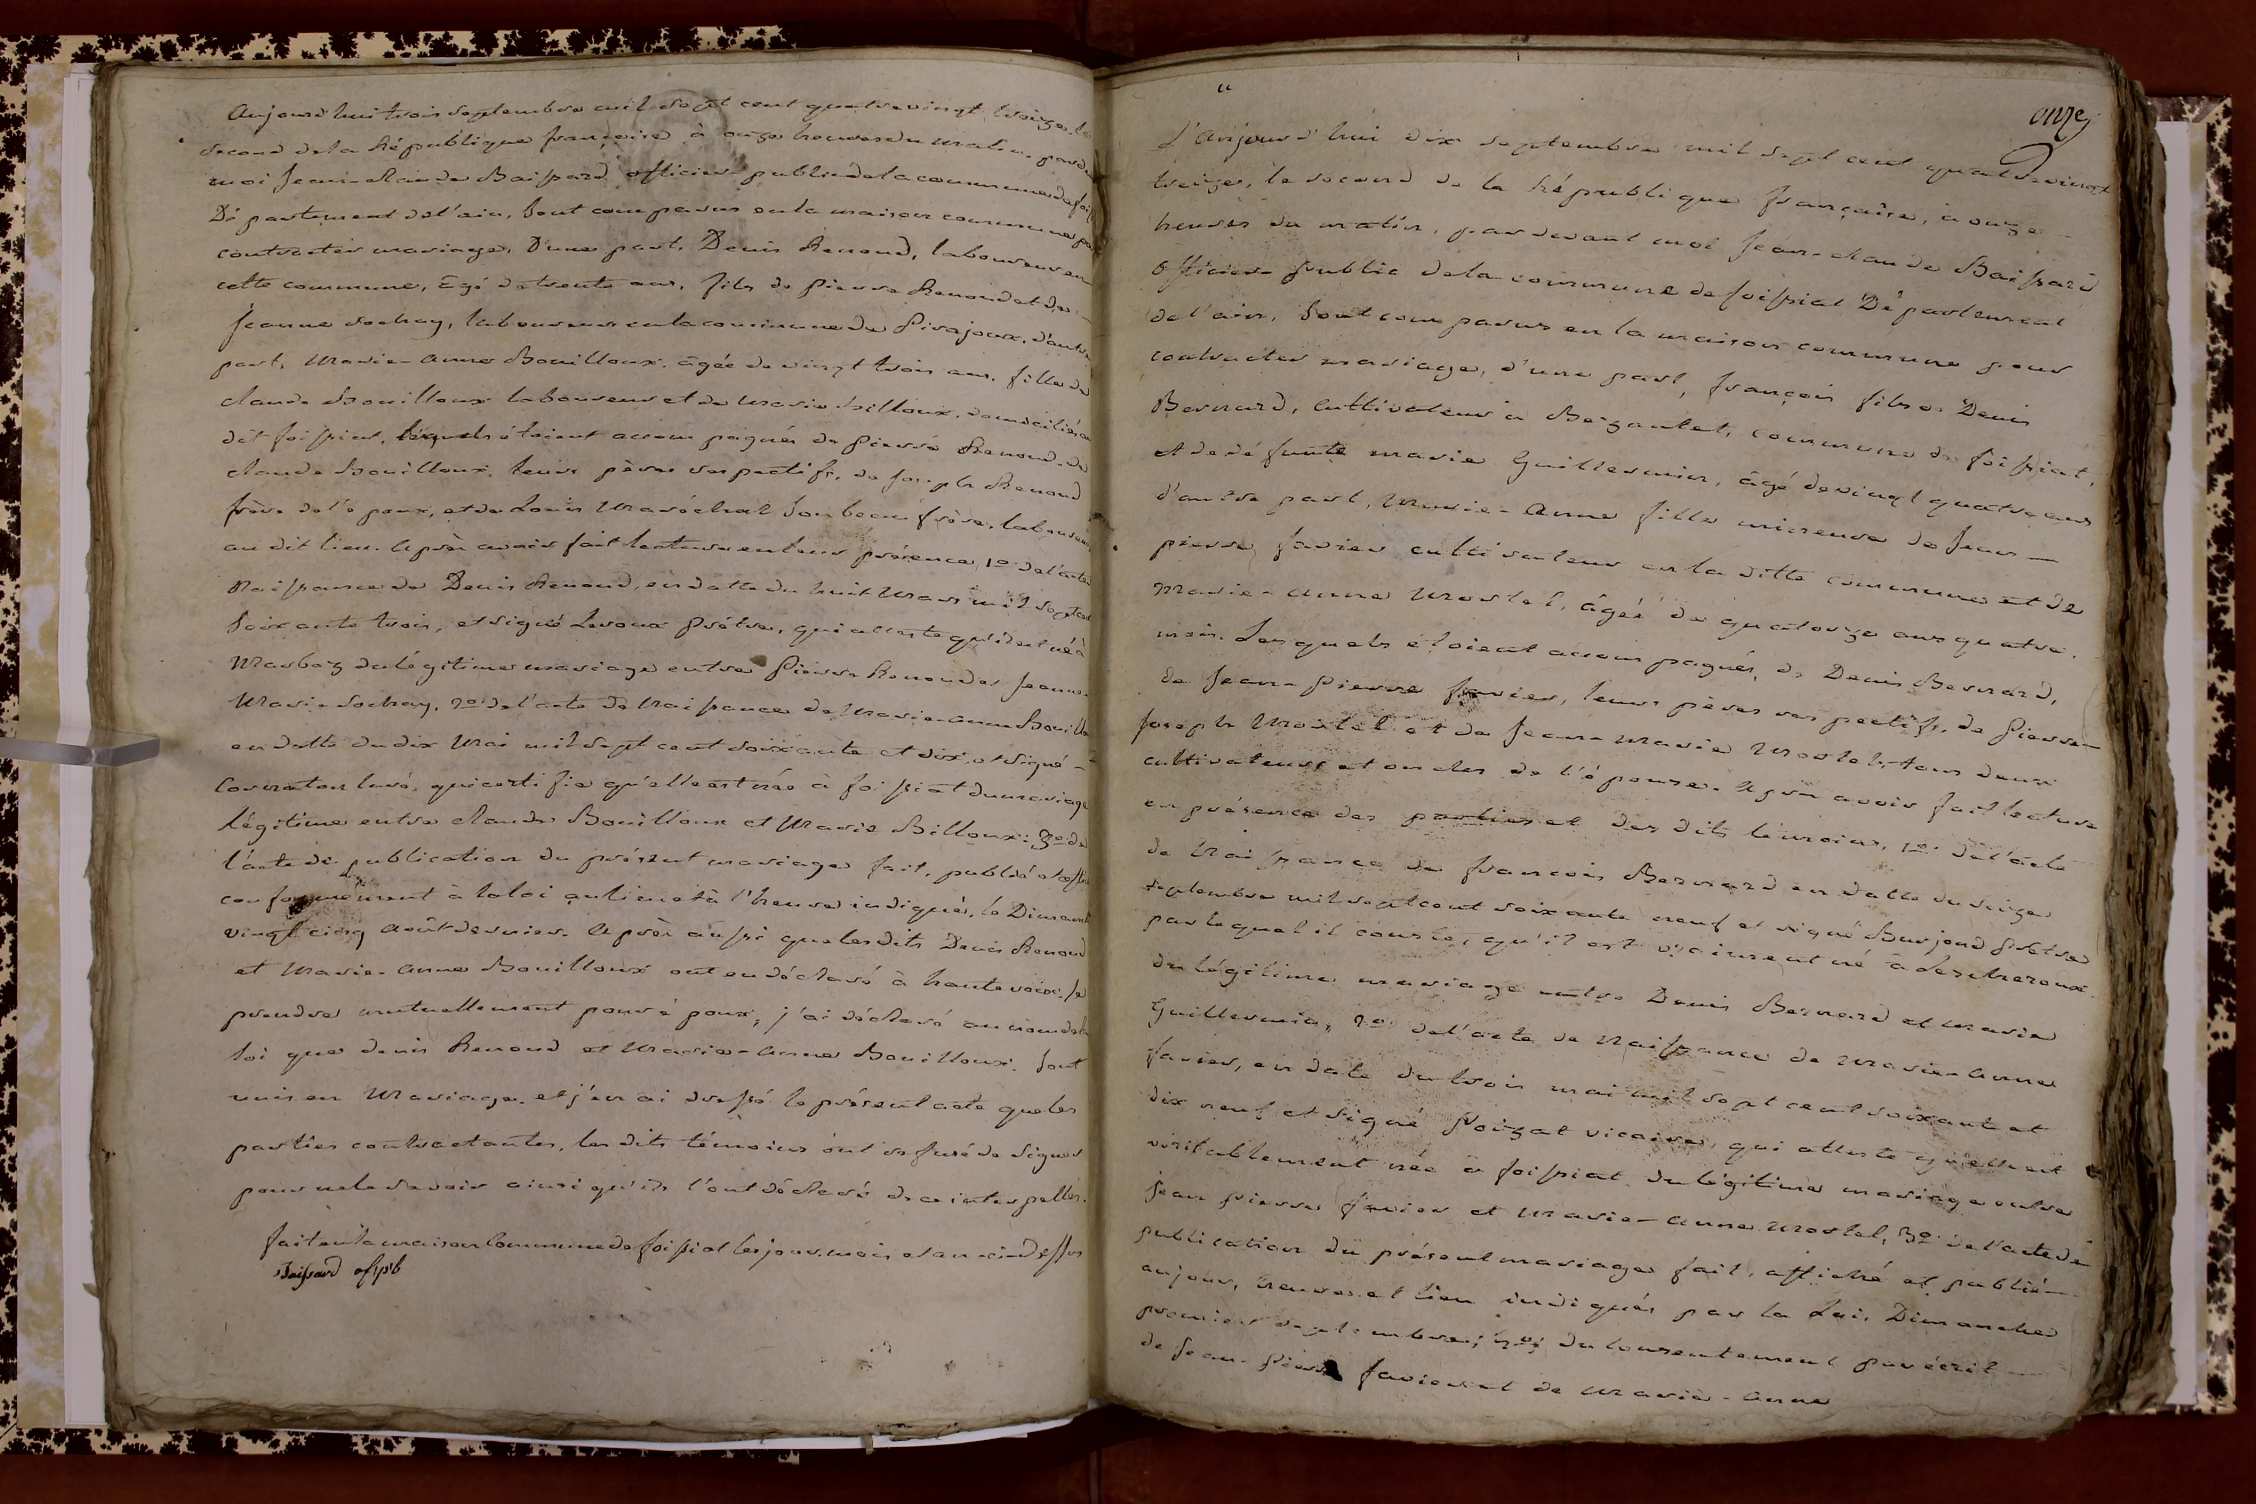 Aujourd'hui trois septembre mil sept cent quatre vingt treize, le
second de la République françoise à onze heures du matin, pard
moi Jean-claude Baissard officier public de la commune de foiss
Département de l'ain, sont comparus en la maison commune po
contracter mariage, D'une part, Denis Renoud, laboureur en
cette commune, âgé de trente ans, fils de Pierre Renoud et de
Jeanne sochay, laboureur en la commune de Pirajoux, d'autre
part, Marie-anne Bouilloux, âgée de vingt trois ans, fille de
claude Bouilloux laboureur et de Marie billoux, domiciliés au
dit foissiat, lesquels étoient accompagnés de Pierre Renoud, de
claude bouilloux, leurs pères respectifs, de joseph Renoud
frère de l'époux, et de Louis Maréchal son beau frère, laboureurs
au dit lieu. Après avoir fait lecture en leur présence, 1o de l'acte de
Naissance de Denis Renoud, en datte du huit Mars mil sept cent
soixante trois, et signé Leroux Prêtre, qui atteste qu'il est né à
Marboz du légitime mariage entre Pierre Renoud et Jeanne
Marie sochay, 2o de l'acte de Naissance de Marie-anne Bouillo
en datte du dix Mai mil sept cent soixante et dix, et signé -
Cormaton curé, qui certifie qu'elle est née à foissiat du mariage
légitime entre claude Bouilloux et Marie Billoux: 3o de
l'acte de publication du présent mariage fait, publié et affi
conformément à la loi au lieu et à l'heure indiqués, le Dimanch
vingt cinq Août dernier. Après aussi que lesdits Denis Renoud
et Marie-anne Bouilloux ont eu déclaré à haute voix, se
prendre mutuellement pour époux, j'ai déclaré au nom de la
loi que denis Renoud et Marie-anne Bouilloux. sont
unis en Mariage, et j'en ai dressé le présent acte que les
parties contractantes, les dits témoins ont refusé de signer
pour ne le savoir ainsi qu'ils l'ont déclaré de ce interpellés.
fait en la maison Commune de foissiat les jour, mois et an ci-dessus
Baissard of. pb
11
onze
L'aujourd'hui dix septembre mil sept cent quatre vingt
treize, le second de la République française, à onze
heures du matin, pardevant moi Jean-claude Baissard
officier public de la commune de foissiat Département
de l'ain, sont comparus en la maison commune pour
contracter mariage, d'une part, françois fils de Denis
Bernard, cultivateur à Bezantet, commune de foissiat,
et de défunte marie Guillermin, âgé de vingt quatre ans
d'autre part, Marie-Anne fille mineure de Jean-
pierre favier cultivateur en la ditte commune et de
Marie-anne Mortel, âgée de quatorze ans quatre
mois. Lesquels étoient accompagnés, de Denis Bernard,
de Jean-Pierre favier, leurs pères respectifs, de Pierre-
Joseph Mortel et de Jean-Marie Mortel, tous deux
cultivateurs et oncles de l'épouse. Après avoir fait lecture
en présence des parties et des dits témoins, 1o. de l'acte
de Naissance de françois Bernard en datte du seize
septembre mil sept cent soixante neuf et signé Burjoud Prêtre
par lequel il conste, qu'il est vraiment né à Lescheroux
du légitime mariage entre Denis Bernard et marie
Guillermin, 2o. de l'acte de Naissance de Marie-Anne
favier, en date du trois mai mil sept cent soixante et
dix neuf et signé Poizat vicaire, qui atteste qu'elle est
véritablement née à foissiat du légitime mariage entre
Jean Pierre favier et Marie-anne Mortel, 3o. de l'acte de
publication du présent mariage fait, affiché et publié
au jour, heures et lieu indiqués par la Loi, Dimanche
premier septembre; 4o; du consentement par écrit
de Jean-Pierre favier et de Marie-anne